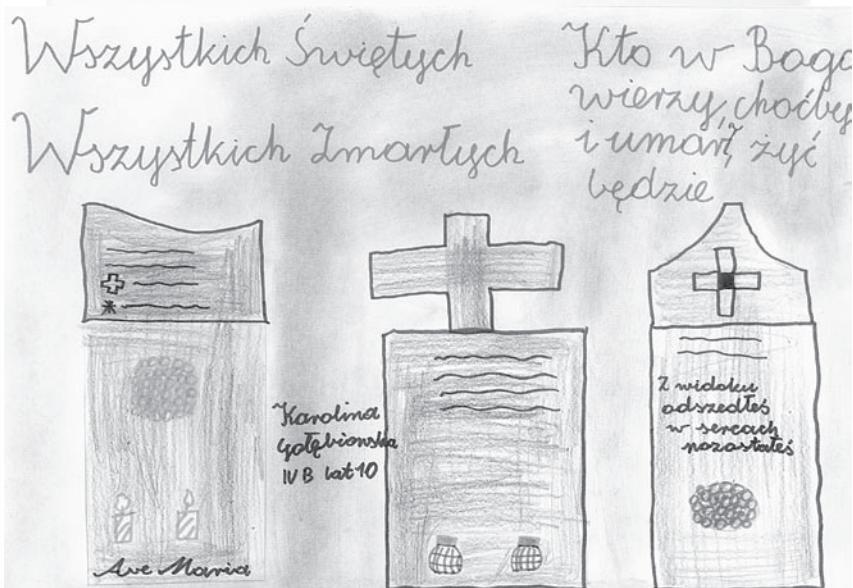 Wszystkich Świętych
Wszystkich Zmarłych
Kto w Boga
wierzy, choćby
i umarł, żyć
będzie
Ave Maria
Karolina
Gołębiowska
IV B lat 10
Z widoku
odszedłeś
w sercach
pozostałeś